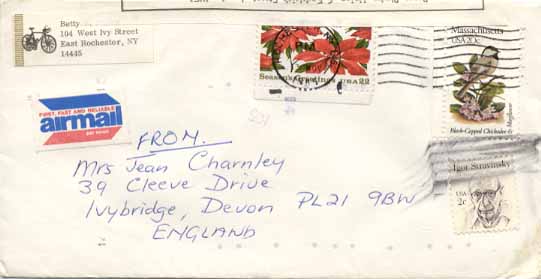 Betty
104 West Ivy Street
East Rochester, NY
14445
Season's Greetings USA 22
Massachusetts
USA 20c
Black-Capped Chickadee &
Mayflower
FIRST, FAST AND RELIABLE
airmail
FROM.
Mrs Jean Charnley
39 Cleeve Drive
Ivybridge, Devon PL21 9BW
ENGLAND
Igor Stravinsky
USA
2c